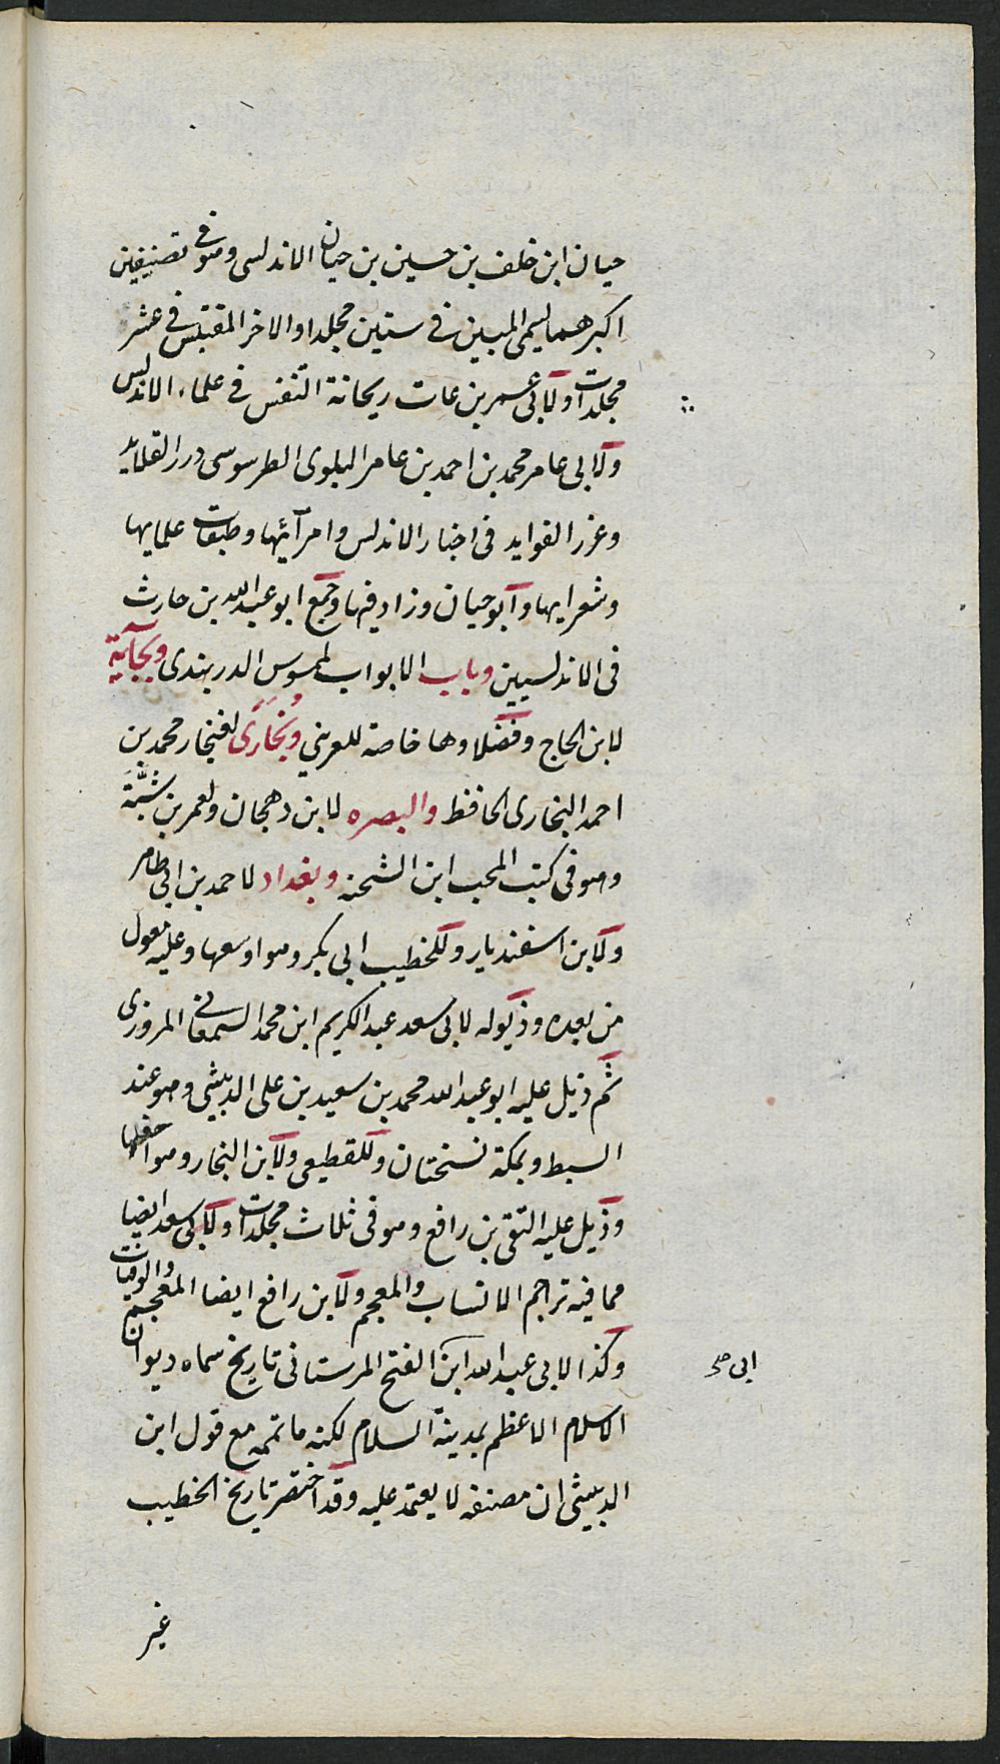 حيان ابن خلف بن حسين بن حيان الاندلسى وهو فى تصنيفين
اكبرهما يسمى المبين فى ستين مجلدا والاخر المقتبس فى عشر
مجلدات ولابى عمر بن عات ريحانة التنفس فى علماء الاندلس
ولابى عامر محمد بن احمد بن عامر البلوى الطرسوسى درر القلايد
وغرر الفوايد فى اخبار الاندلس وامرآئها وطبقات علمايها
وشعرايها وابو حيان وزاد فيها وجمع ابو عبد الله بن حارث
فى الاندلسيين وباب الابواب لمموس الدربندى وبجاية
لابن الحاج وفضلاوها خاصة للعرينى وبُخَارَى لغنجار محمد بن
احمد البخارى الحافظ والبصره لابن دهجان ولعمر بن شَبَّةَ
وهو فى كتب المحب ابن الشحنه وبغداد لاحمد بن ابى طاهر
ولابن اسفنديار وللخطيب ابى بكر وهو اوسعها وعليه معول
من بعده وذيوله لابى سعد عبد الكريم ابن محمد السمعانى المروزى
ثم ذيل عليه ابو عبد الله محمد بن سعيد بن على الدبيثى وهو عند
السبط وبمكة نسختان وللقطيعى ولابن النجار وهو احفلها
وذيل عليه التقى بن رافع وهو فى ثلاث مجلدات ولابى سعد ايضا
مما فيه تراجم الانساب والمعجم ولابن رافع ايضا المعجم والوفيات
وكذا لابى عبد الله ابن الفتح المرستانى تاريخ سماه ديوان
ابى صح
الاسلام الاعظم بمدينة السلام لكنه ماتممه مع قول ابن
الدبيثى ان مصنفه لا يعتمد عليه وقد اختصر تاريخ الخطيب
غير